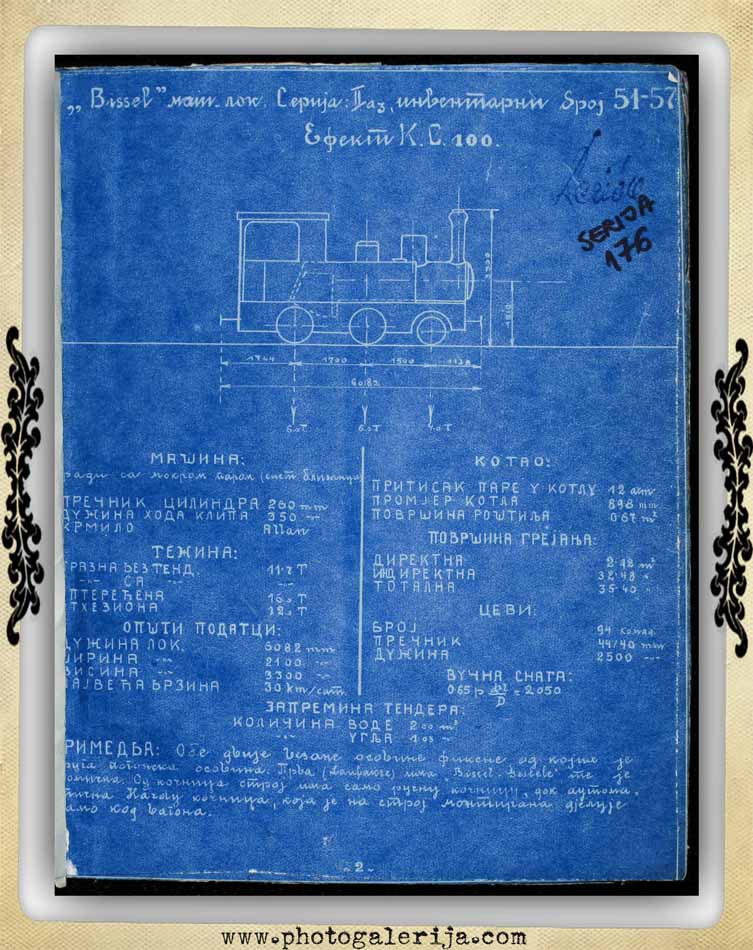 „Bissel" маш. лок. Серија: IIаз, инвентарни број 51-57
Ефект К.С. 100.
SERIJA
176
1744 1700 1500 1138
6082
6.0T 6.0T 4.0T
МАШИНА:
ради са мокром паром
ПРЕЧНИК ЦИЛИНДРА 260 mm
ДУЖИНА ХОДА КЛИПА 350 "
КРМИЛО Allan
ТЕЖИНА:
ПРАЗНА БЕЗ ТЕНД. T
" СА "
ОПТЕРЕЂЕНА T
АТХЕЗИОНА T
ОПШТИ ПОДАТЦИ:
ДУЖИНА ЛОК. 6082 mm
ШИРИНА " 2100 "
ВИСИНА " 3300 "
НАЈВЕЋА БРЗИНА 30 km/сат.
КОТАО:
ПРИТИСАК ПАРЕ У КОТЛУ 12 атм
ПРОМЈЕР КОТЛА 898 mm
ПОВРШИНА РОШТИЉА 0.67 m²
ПОВРШИНА ГРЕЈАЊА:
ДИРЕКТНА m²
ИНДИРЕКТНА 32.98 "
ТОТАЛНА 35.40 "
ЦЕВИ:
БРОЈ 94 комад.
ПРЕЧНИК 44/40 mm
ДУЖИНА 2500 "
ВУЧНА СНАГА:
= 2050
ЗАПРЕМИНА ТЕНДЕРА:
КОЛИЧИНА ВОДЕ 2.00 m³
" УГЉА
ПРИМЕДБА: Обе двије везане осовине фиксне од којих је
друга погонска осовина. Прва има "Bissel" те је
Од кочница строј има само ручну кочницу, док аутома-
тична Hardy кочница, која је на строј монтирана дјелује
само код вагона.
- 2 -
www.photogalerija.com